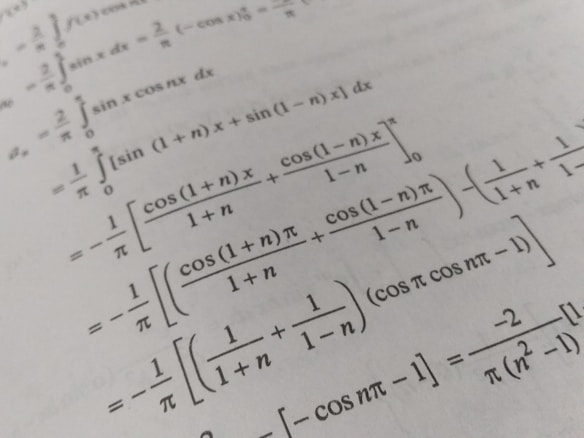 = 2/π ∫₀^π f(x) cos nx
= 2/π ∫₀^π sin x dx = 2/π (−cos x)₀^π =
aₙ = 2/π ∫₀^π sin x cos nx dx
= 1/π ∫₀^π [sin (1 + n) x + sin (1 − n) x] dx
= − 1/π [cos (1 + n) x/1 + n + cos (1 − n) x/1 − n]₀^π
= − 1/π [(cos (1 + n) π/1 + n + cos (1 − n) π/1 − n) − (1/1 + n + 1/1 −
= − 1/π [(1/1 + n + 1/1 − n) (cos π cos nπ − 1)]
[− cos nπ − 1] = −2/π (n² − 1) [1